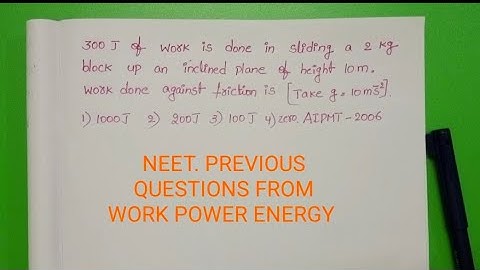 300 J of work is done in sliding a 2 kg
block up an inclined plane of height 10m.
Work done against friction is [Take g = 10ms⁻²].
1) 1000J 2) 200J 3) 100J 4) zero. AIPMT - 2006
NEET. PREVIOUS
QUESTIONS FROM
WORK POWER ENERGY